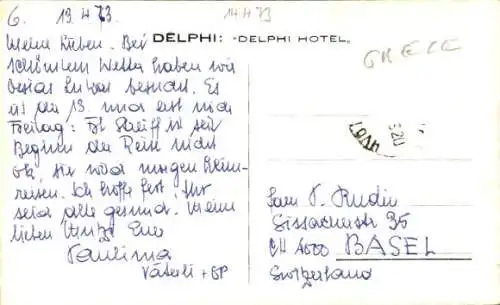 6. 13.4.73
14 4 73
DELPHI: -DELPHI HOTEL,
GRECE
Meine Lieben. Bei
schönstem Wetter haben wir
besucht. Es
ist der 13. und erst noch
Freitag: Frl. Streiff ist seit
Beginn der Reise nicht
ok. Sie wird morgen heim-
reisen. Ich hoffe fest, Ihr
seid alle gesund. Meine
lieben Eure
Paulina
Väterli + GP
Fam P. Rudin
Sissacherstr 35
CH 4000 BASEL
Switzerland